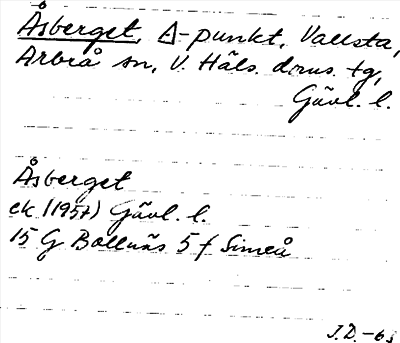 Åsberget, Δ-punkt, Vallsta,
Arbrå sn, V. Häls. doms. tg,
Gävl. l.
Åsberget
ek (1957) Gävl. l.
15 G Bollnäs 5 f Simeå
J.D.-63